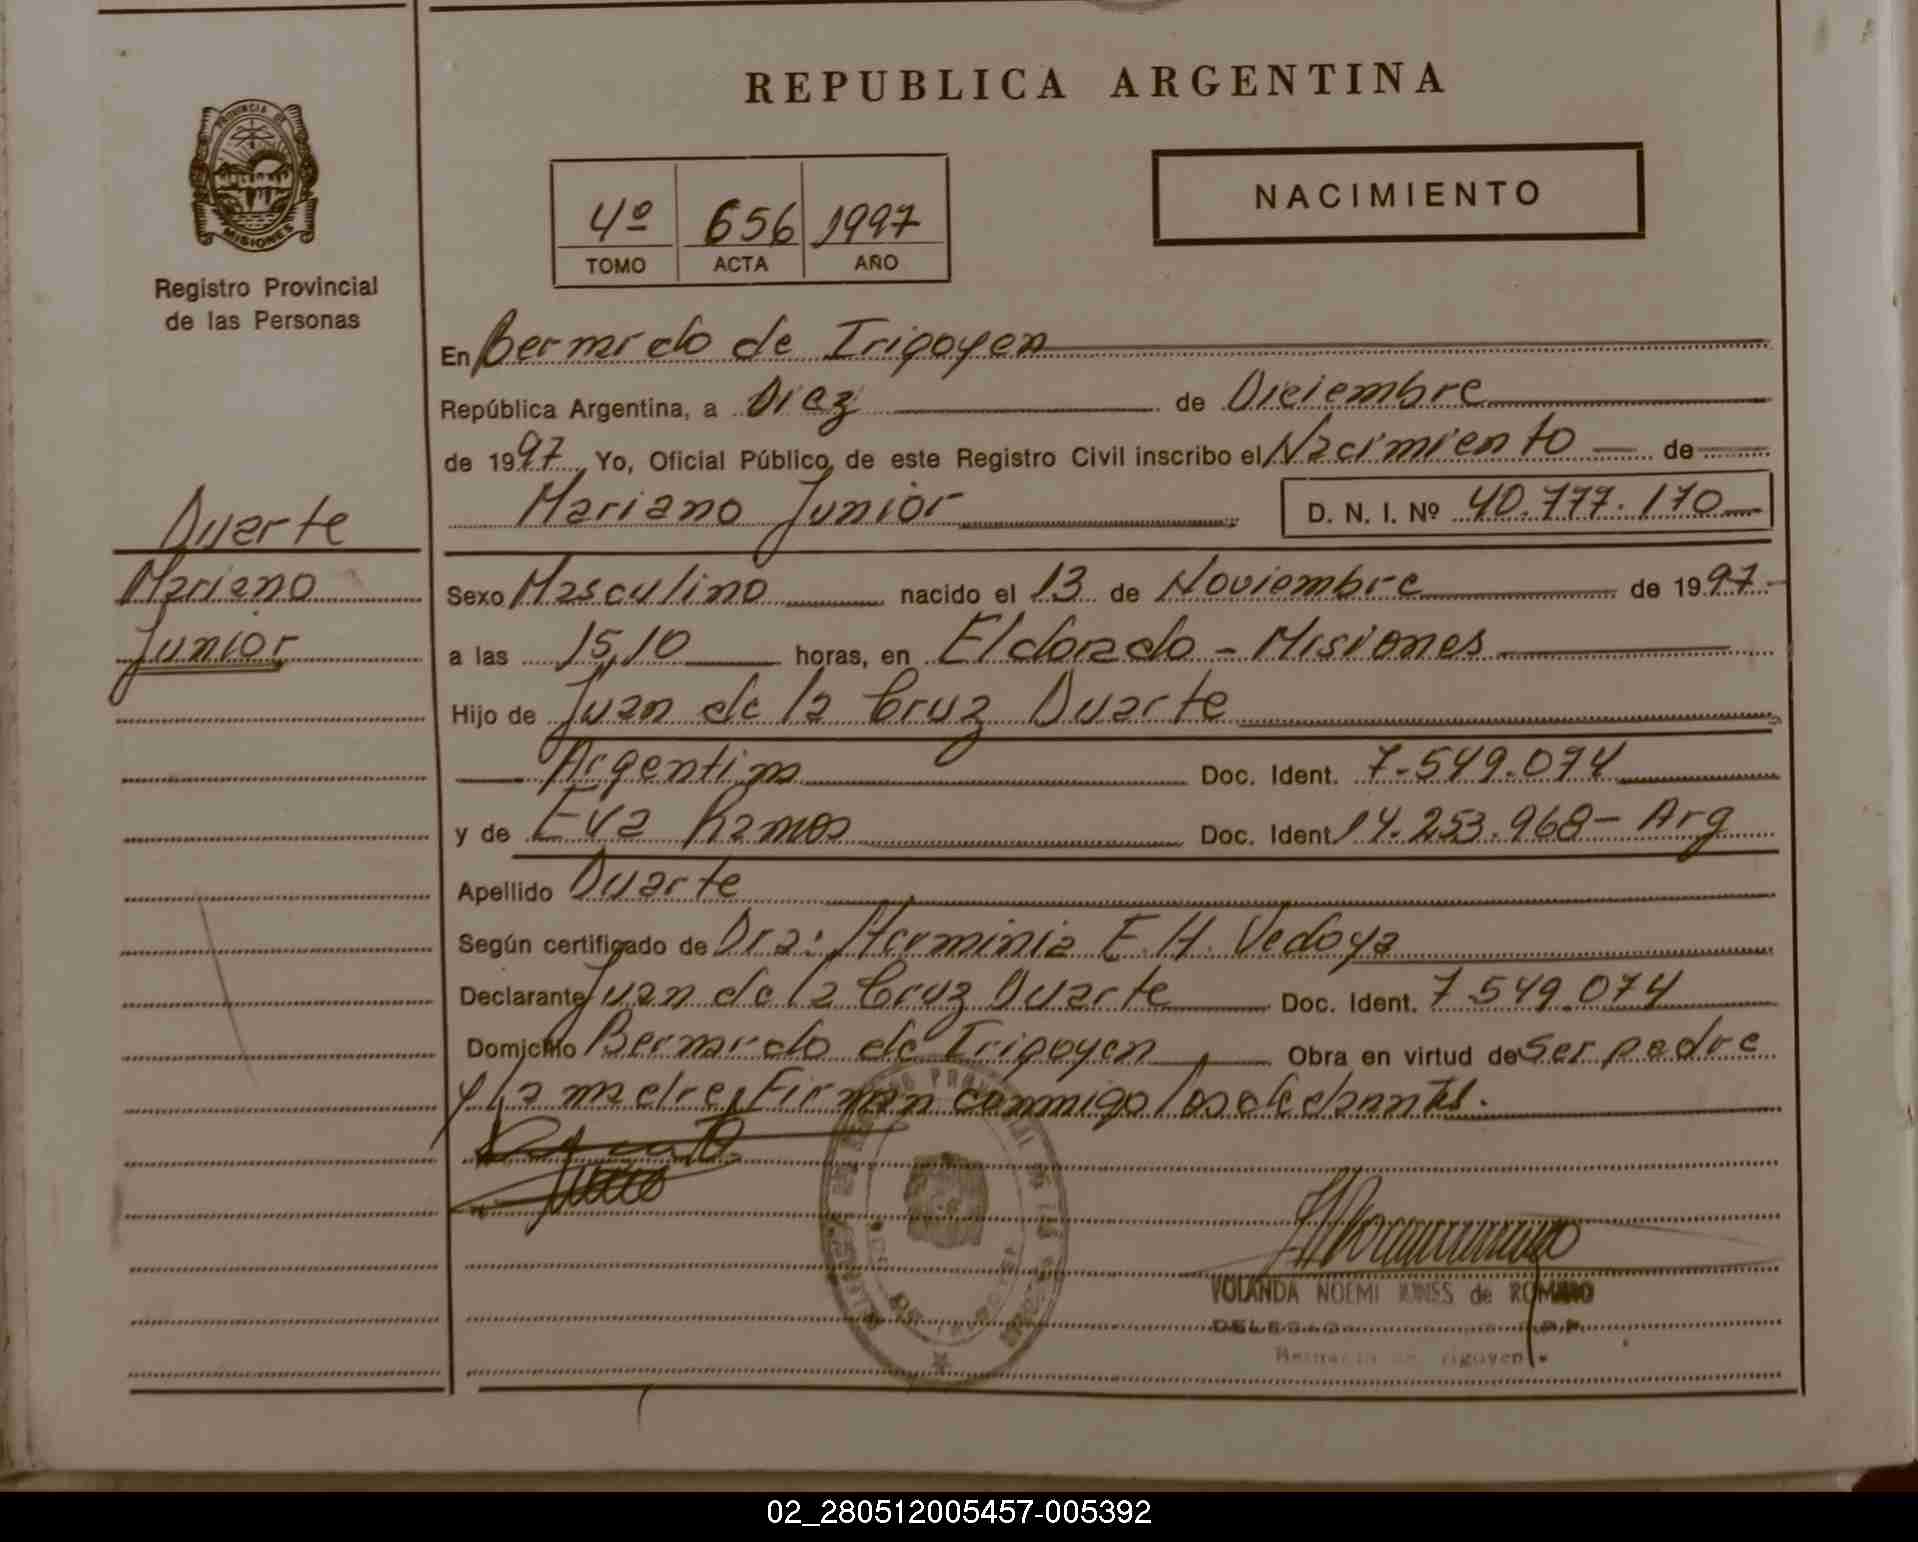 REPUBLICA ARGENTINA
PROVINCIA DE
MISIONES
Registro Provincial
de las Personas
4º 656 1997
TOMO ACTA AÑO
NACIMIENTO
Duarte
Mariano
Junior
En Bernardo de Irigoyen
República Argentina, a Diez de Diciembre
de 1997 Yo, Oficial Público, de este Registro Civil inscribo el Nacimiento de
Mariano Junior D. N. I. Nº 40.777.170
Sexo Masculino nacido el 13 de Noviembre de 1997
a las 15,10 horas, en Eldorado - Misiones
Hijo de Juan de la Cruz Duarte
Argentino Doc. Ident. 7.549.074
y de Eva Ramos Doc. Ident. 14.253.968 - Arg
Apellido Duarte
Según certificado de Dra: Herminia E. H. Vedoya
Declarante Juan de la Cruz Duarte Doc. Ident. 7.549.074
Domicilio Bernardo de Irigoyen Obra en virtud de ser padre
y la madre, Firman conmigo los declarantes.
YOLANDA NOEMI de ROMANO
Bernardo de Irigoyen
02_280512005457-005392